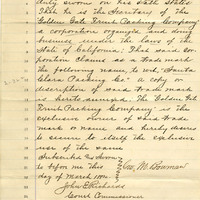 duly sworn on his oath states
That he is the Secretary of the
Golden Gate Fruit Packing Company
a corporation organized and doing
business under the laws of the
State of California; That said corp-
oration claims as a trade mark
the following name, to wit, "Santa
Clara Packing Co" a copy or
description of said trade mark
is hereto annexed. The Golden Gate
Fruit Packing Company is the
exclusive owner of said trade
mark or name and hereby desires
to secure to itself the exclusive
use of the same
Subscribed and sworn
to before me this
day of March 1890
Geo. M. Bowman
John E. Richards
Court Commissioner